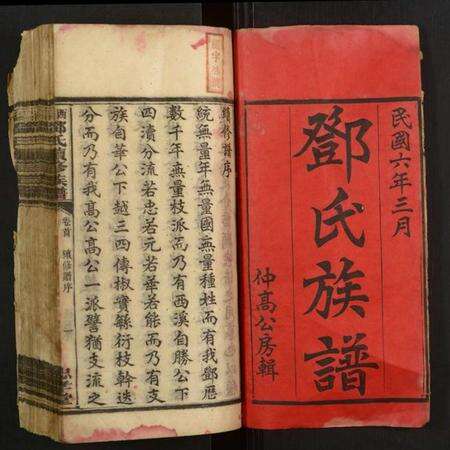 民國六年三月
鄧氏族譜
仲高公房輯
續修譜序
統無量年無量國無量種姓而有我鄧應
數千年無量枝派而乃有西溪自勝公下
四潰分流若忠若元若華若能而乃有支
族自華公下越三四傳椒實繇衍枝幹迭
分而乃有我高公高公一派譬猶支流之
西鄧氏續修族譜
卷首
續修譜序